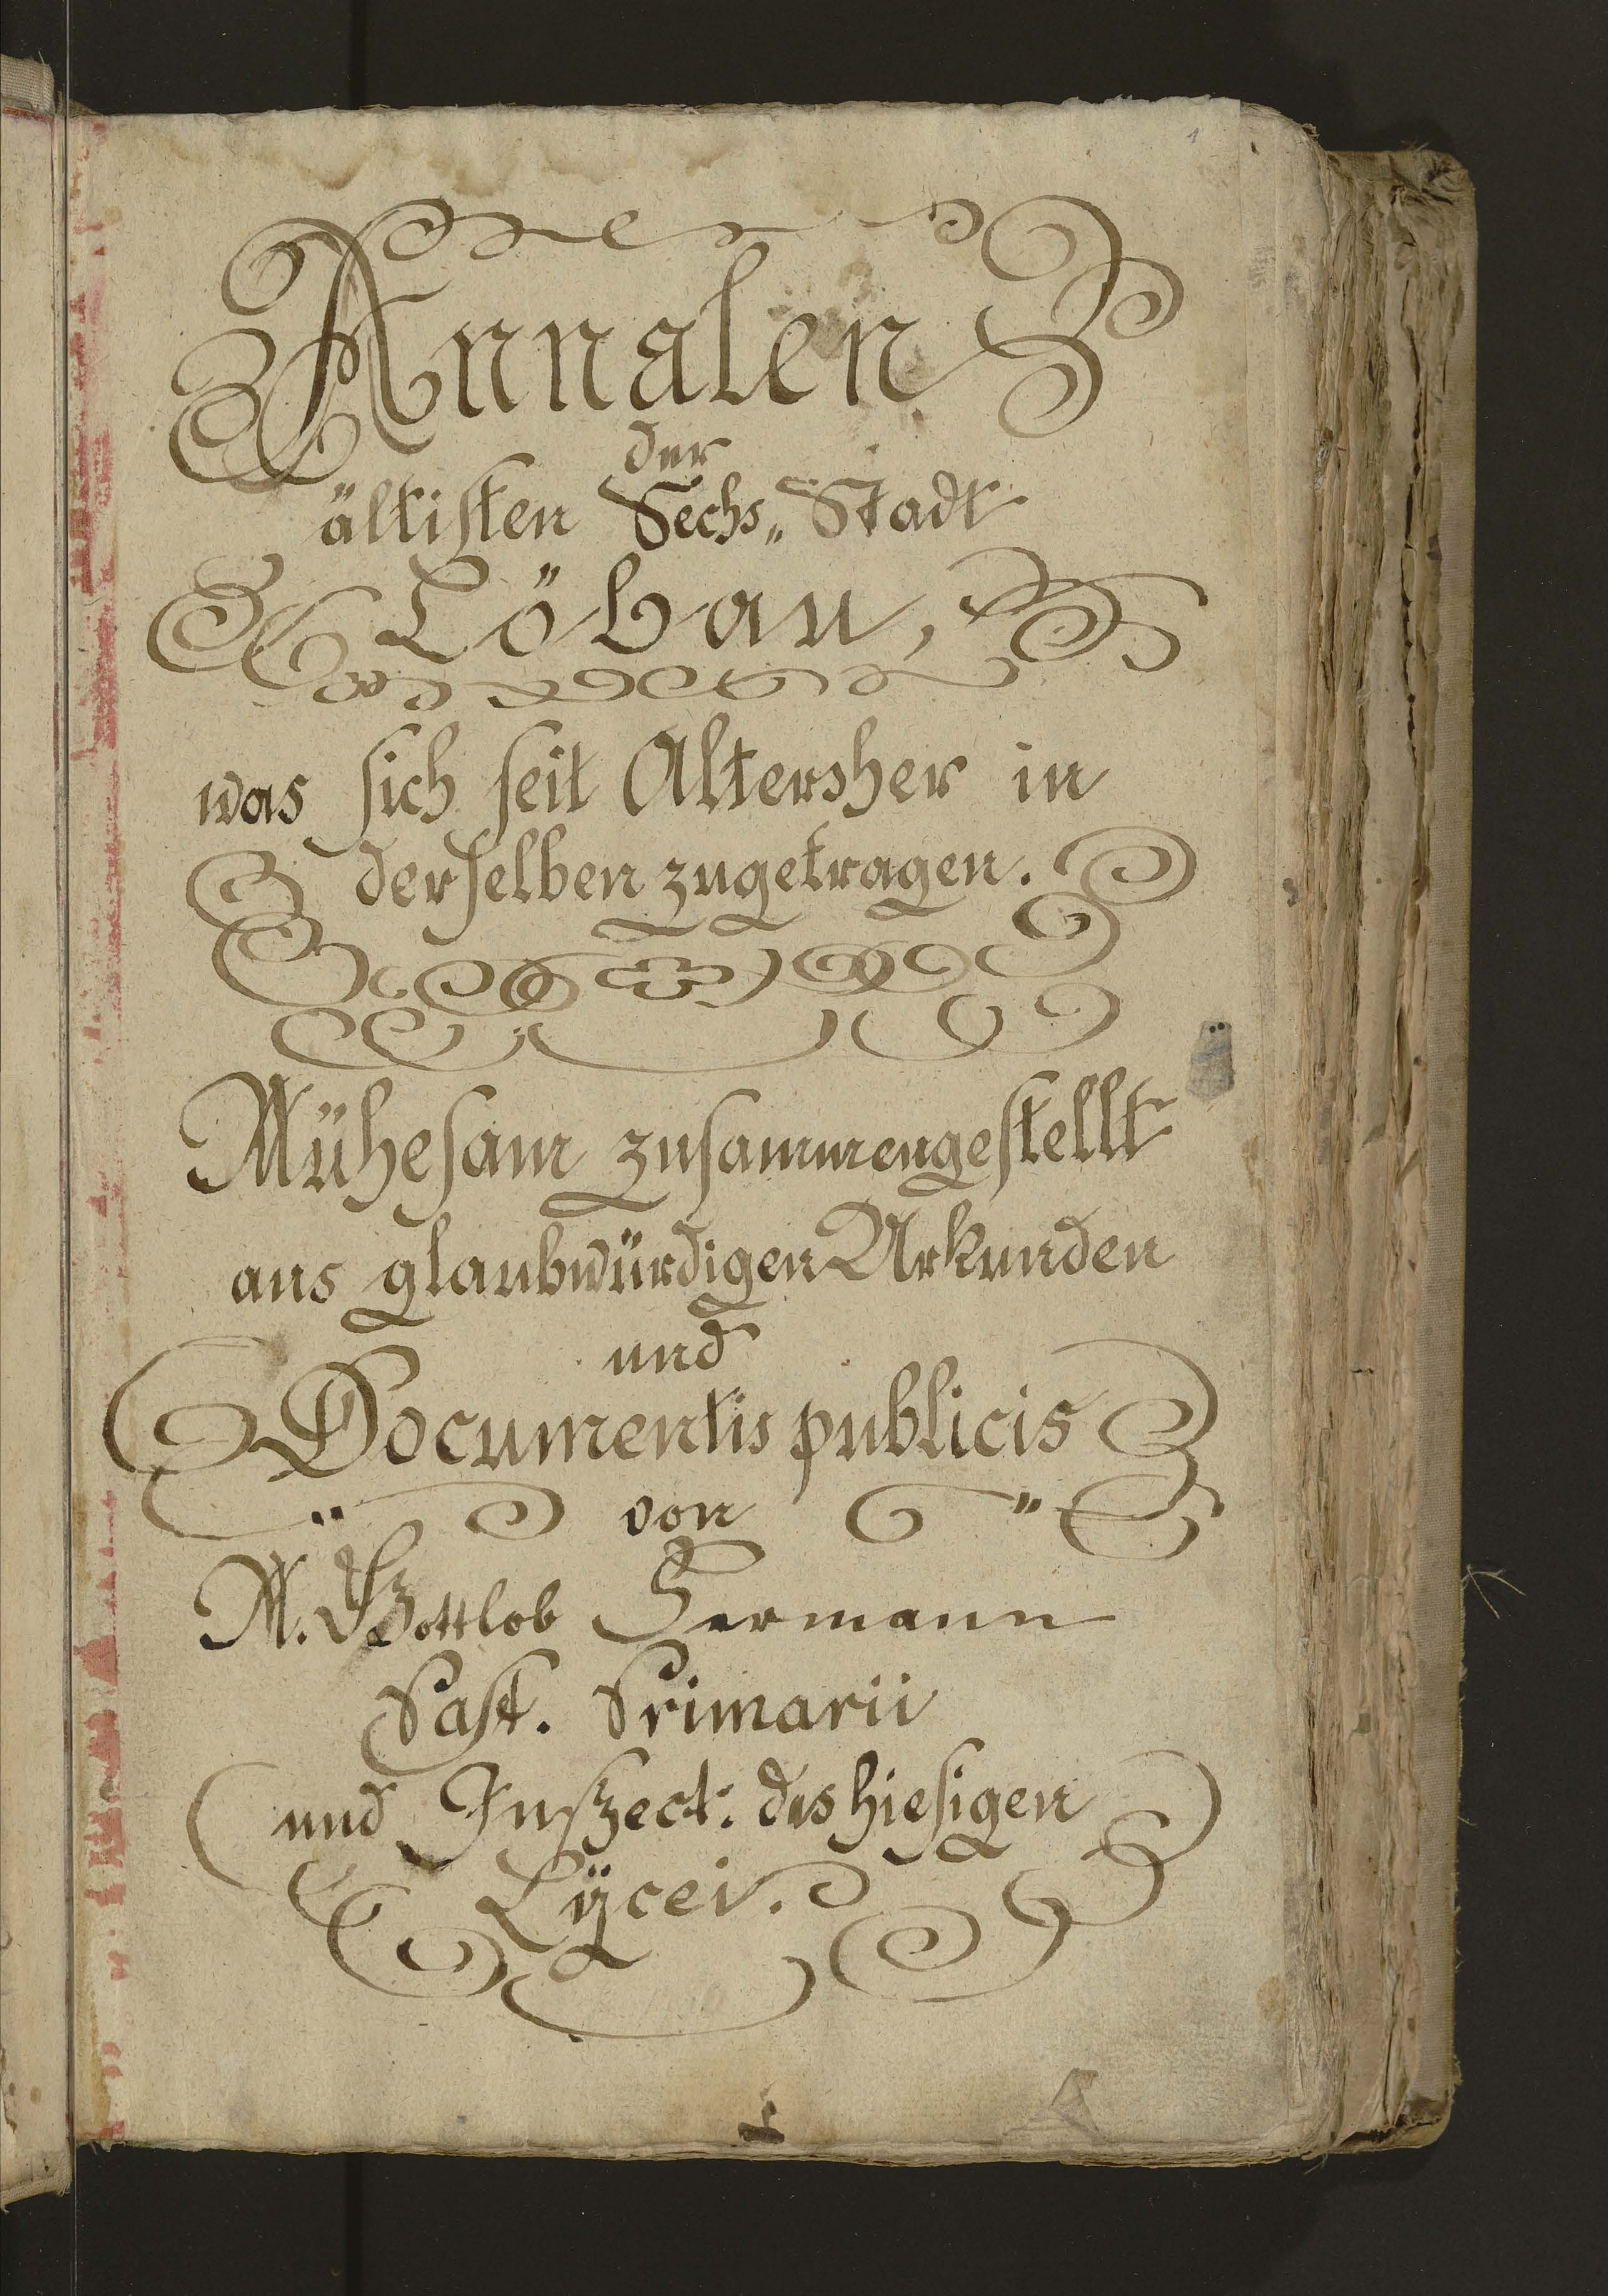 1
Annalen
der
ältisten Sechs„ Stadt
Löbau,
was sich seit Altersher in
derselben zugetragen.
Mühesam zusammengestellt
aus glaubwürdigen Urkunden
und
Documentis publicis
von
M. Gottlob Hermann
Past. Primarii
und Inspect. des hiesigen
Lÿcei.